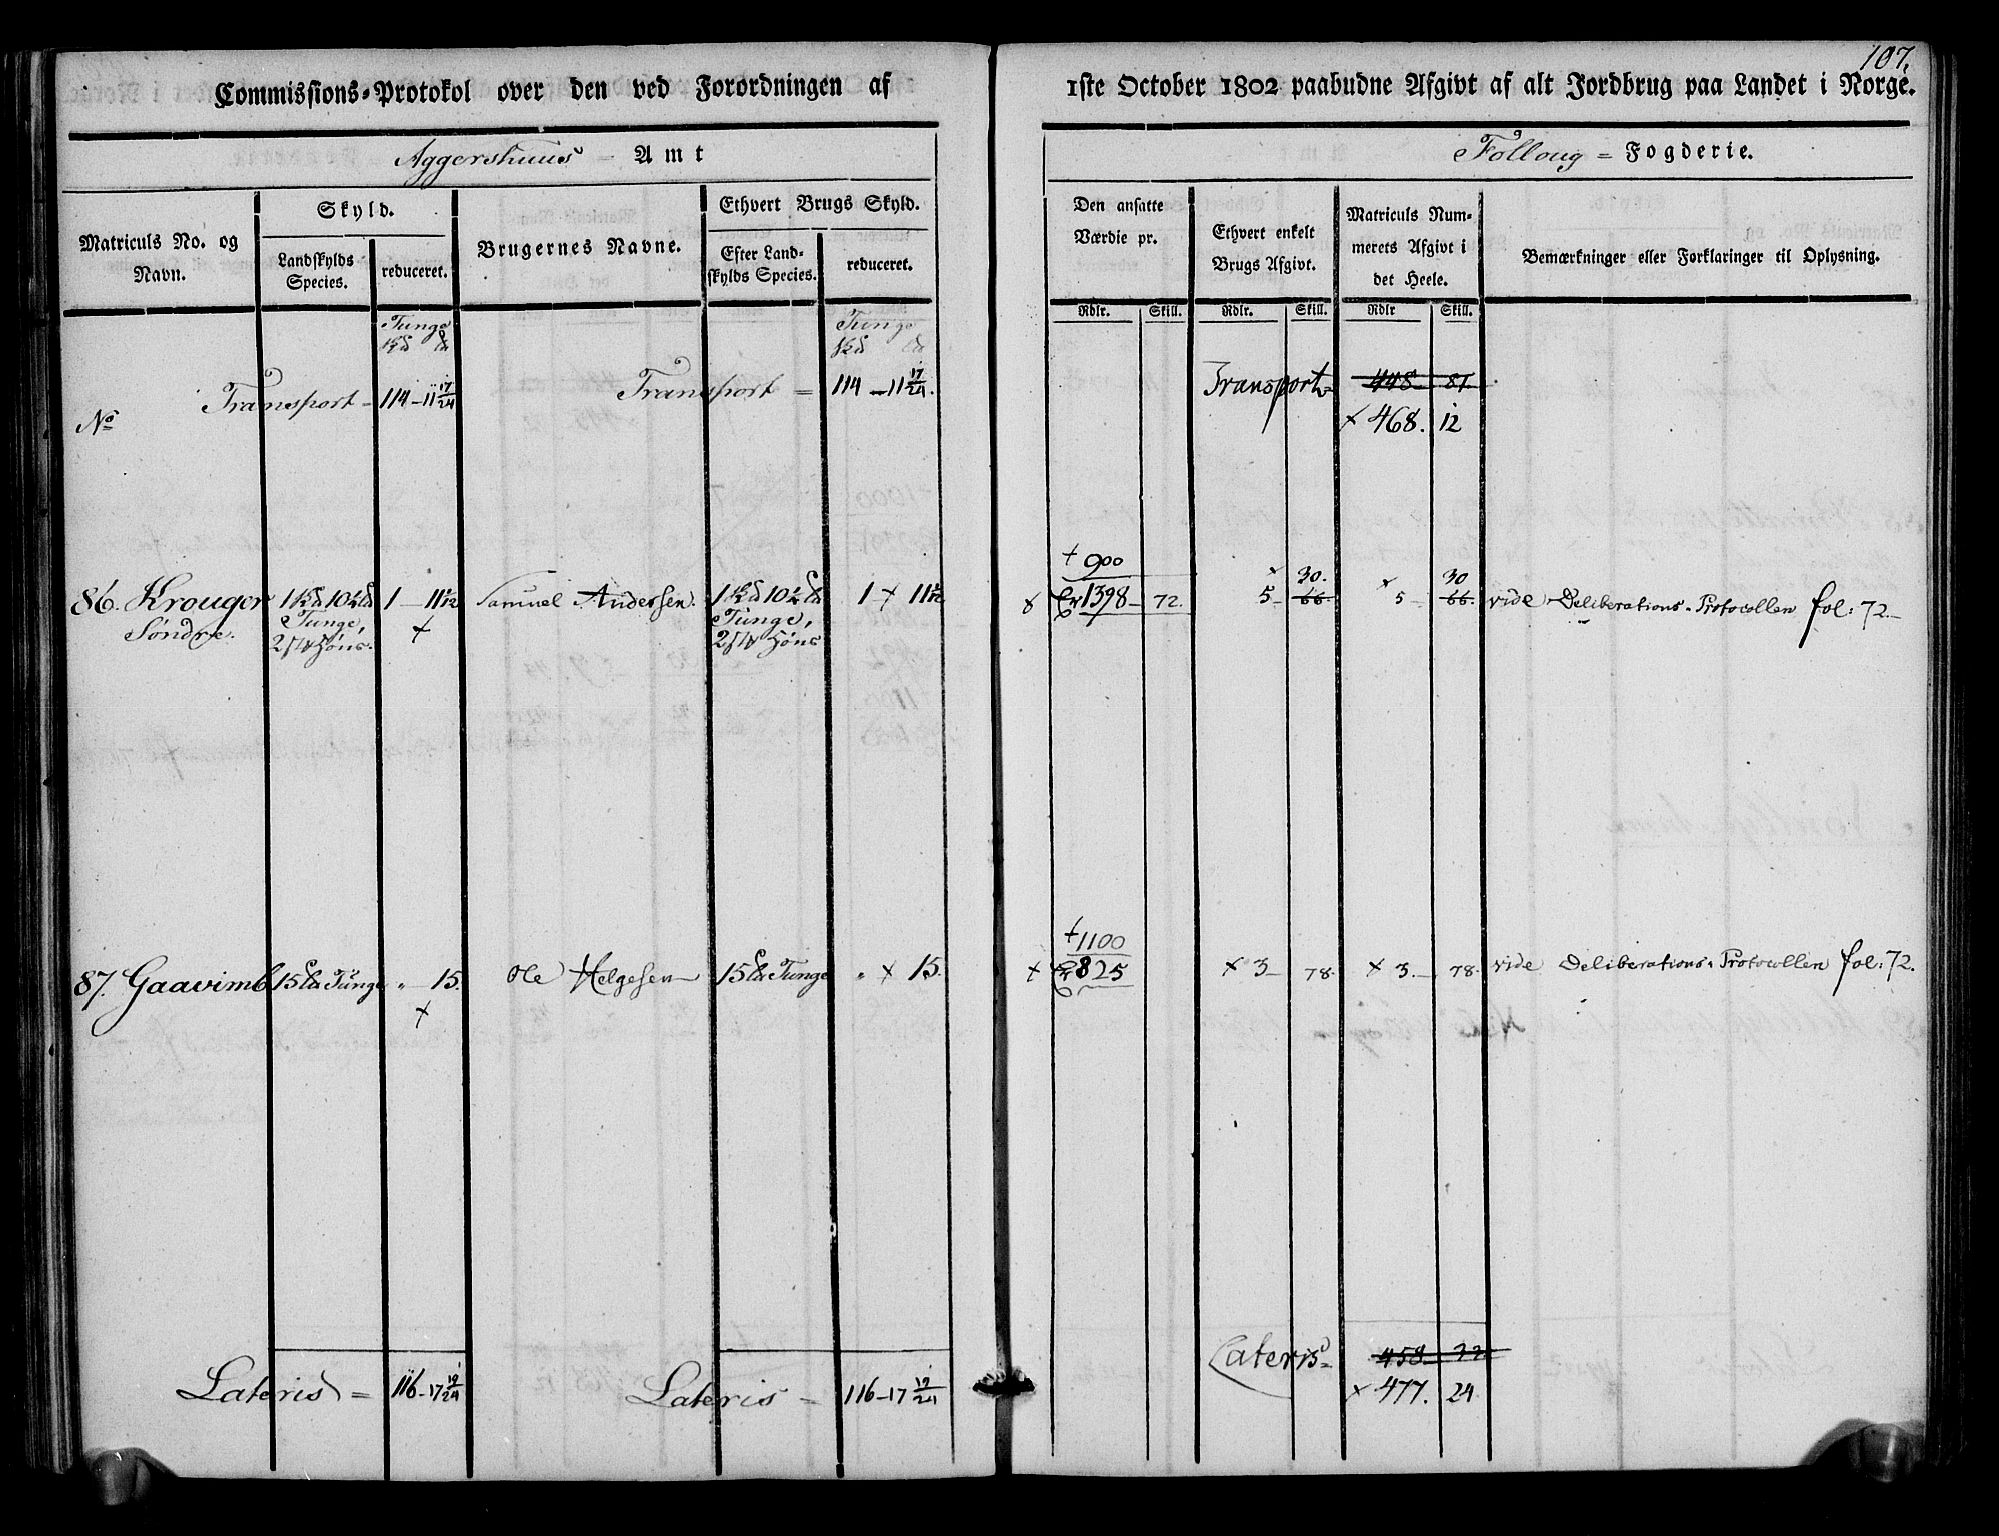 107.
Commissions-Protokol over den ved Forordningen af
1ste October 1802 paabudne Afgivt af alt Jordbrug paa Landet i Norge.
Aggershuus = Amt
Follong = Fogderie.
Matriculs No. og Navn.
Skyld.
Landskylds Species.
reduceret.
Brugernes Navne.
Ethvert Brugs Skyld.
Efter Landskylds Species.
reduceret.
Den ansatte Værdie pr.
Ethvert enkelt Brugs Afgivt.
Matriculs Nummerets Afgivt i det Heele.
Bemærkninger eller Forklaringer til Oplysning.
Rdlr. Skill. Rdlr. Skill. Rdlr Skill.
Tunge Tunge
No Transport = 114 - 11 17/24 Transport = 114 - 11 17/24. Transport = 448 81.
× 468. 12
+ 900 30. 30
86. Krouger 1 10½ 1 - 11 1/12 Samuel Andersen. 1 10½ 1 × 11 1/12 1398 - 72. 5 - 66. × 5 - 66. vide Deliberations-Protocollen fol: 72.
Søndre. Tunge, Tunge,
2 Høns. 2 Høns
+ 1100
87. Gaavimb 15 Tunge „ - 15. Ole Helgesen 15 Tunge „ × 15. × 825 × 3 - 78. × 3. - 78. vide Deliberations-Protocollen fol: 72.
Lateris = 116 - 17 19/24 Lateris = 116 - 17 19/24 Lateris = 458 - 22
× 477. 24.